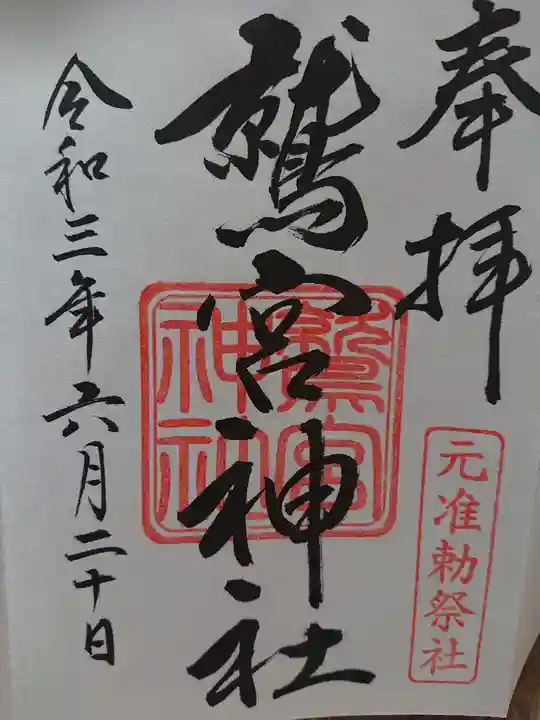 奉拝
元准勅祭社
鷲宮神社
鷲宮
神社
令和三年六月二十日